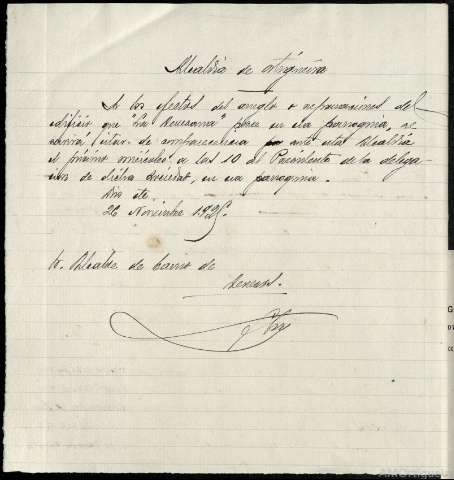 Alcaldía de Ortigueira
A los efectos del arreglo o reparaciones del
edificio que "La Devesana" posee en esa parroquia, se
servirá citar de comparecencia ante esta Alcaldía
el próximo miércoles a las 10 al Presidente de la delega-
cion de dicha sociedad, en esa parroquia.
Dios etc.
20 Noviembre 192
Sr. Alcalde de barrio de
Devesos.